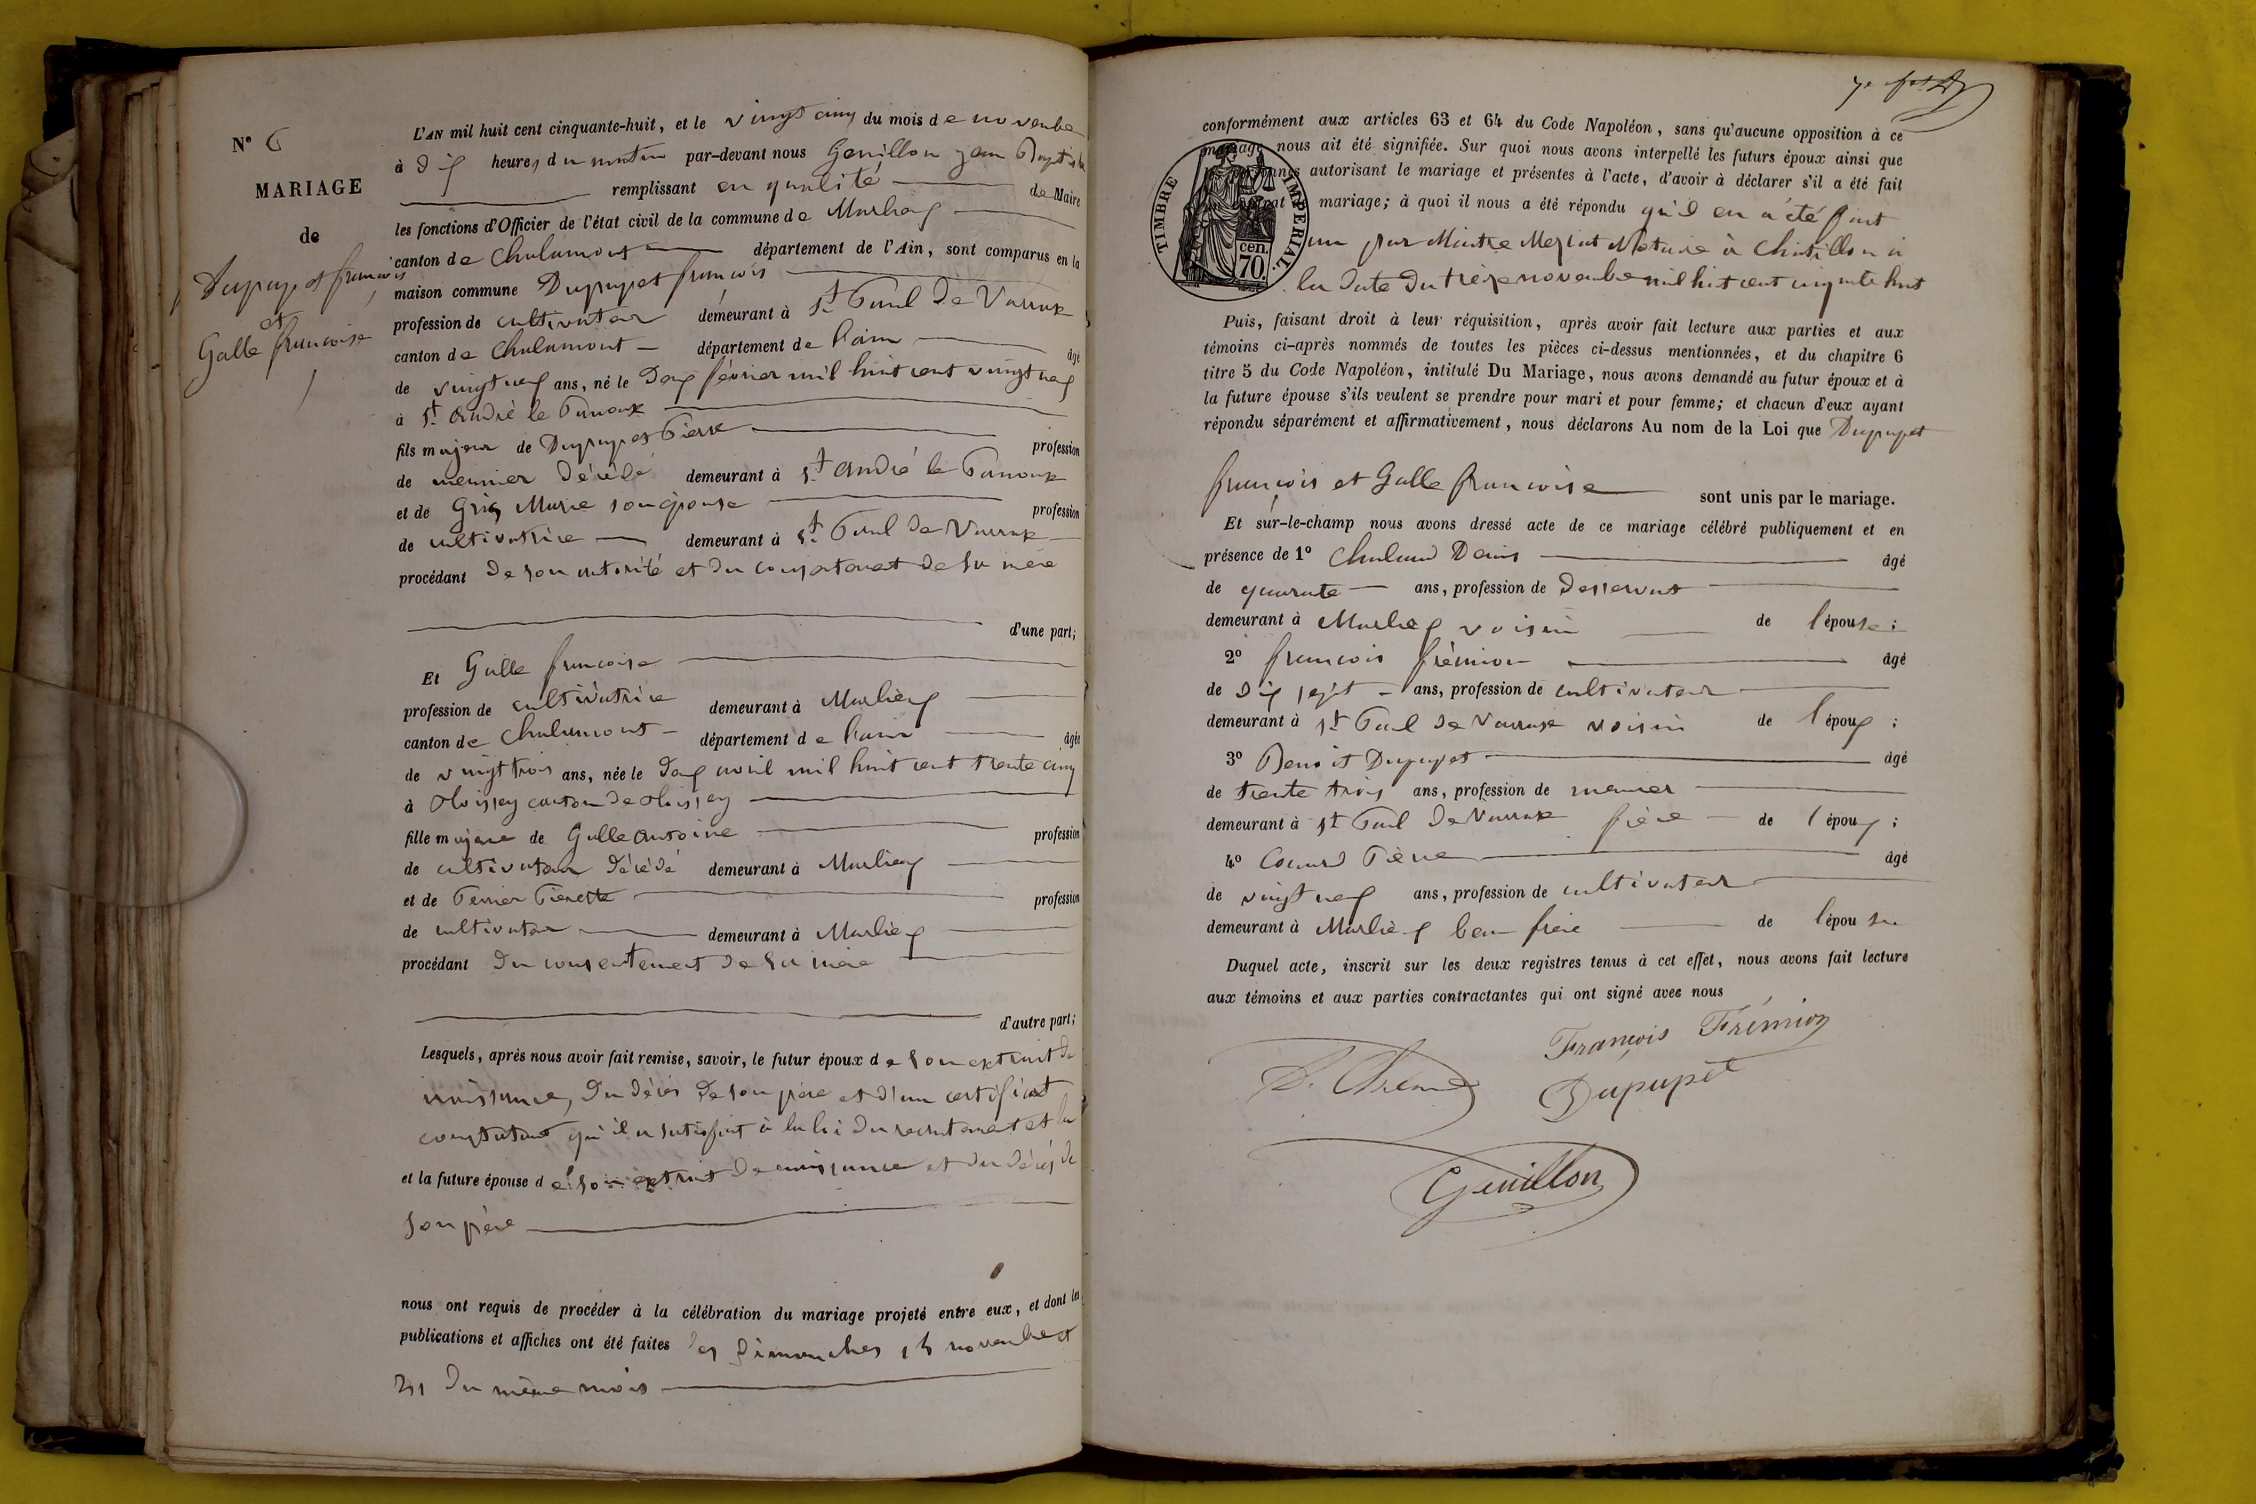 N° 6
MARIAGE
de
Dupupet françois
et
Galle francoise
L'AN mil huit cent cinquante-huit, et le vingt cinq du mois de novembre
à dix heures du matin par-devant nous Genillon jean Baptiste
remplissant en qualité de Maire
les fonctions d'Officier de l'état civil de la commune de Marlieux
canton de Chalamont département de l'Ain, sont comparus en la
maison commune Dupupet françois
profession de cultivateur demeurant à St Paul de Varax
canton de Chalamont département de l'ain âgé
de vingt neuf ans, né le Deux février mil huit cent vingt neuf
à St André le Panoux
fils majeur de Dupupet Pierre profession
de meunier décédé demeurant à St André le Panoux
et de Marie son épouse profession
de cultivatrice demeurant à St Paul de Varax
procédant de son autorité et du consentement de sa mère
d'une part;
Et Galle francoise
profession de cultivatrice demeurant à Marlieux
canton de Chalamont département de l'ain âgée
de vingt trois ans, née le Deux avril mil huit cent trente cinq
à Thoissey canton de Thoissey
fille majeure de Galle Antoine profession
de cultivateur décédé demeurant à Marlieux
et de Perrier Pierrette profession
de cultivateur demeurant à Marlieux
procédant du consentement de sa mère
d'autre part;
Lesquels, après nous avoir fait remise, savoir, le futur époux de son extrait de
naissance, du décès de son père et d'un certificat
constatant qu'il a satisfait à la loi du recrutement et la
et la future épouse de son extrait de naissance et du décès de
son père
nous ont requis de procéder à la célébration du mariage projeté entre eux, et dont les
publications et affiches ont été faites les Dimanches 14 novembre et
21 du même mois
conformément aux articles 63 et 64 du Code Napoléon, sans qu'aucune opposition à ce
mariage nous ait été signifiée. Sur quoi nous avons interpellé les futurs époux ainsi que
personnes autorisant le mariage et présentes à l'acte, d'avoir à déclarer s'il a été fait
contrat mariage; à quoi il nous a été répondu qu'il en a été fait
un par Maitre Notaire à Chatillon à
la date du treize novembre mil huit cent cinquante huit
TIMBRE IMPERIAL
cen.
70.
Puis, faisant droit à leur réquisition, après avoir fait lecture aux parties et aux
témoins ci-après nommés de toutes les pièces ci-dessus mentionnées, et du chapitre 6
titre 5 du Code Napoléon, intitulé Du Mariage, nous avons demandé au futur époux et à
la future épouse s'ils veulent se prendre pour mari et pour femme; et chacun d'eux ayant
répondu séparément et affirmativement, nous déclarons Au nom de la Loi que Dupupet
françois et Galle francoise sont unis par le mariage.
Et sur-le-champ nous avons dressé acte de ce mariage célébré publiquement et en
présence de 1° Denis âgé
de quarante ans, profession de Desservant
demeurant à Marlieux voisin de l'épouse;
2° francois frémion âgé
de dix sept ans, profession de cultivateur
demeurant à St Paul de Varax voisin de l'époux;
3° Benoit Dupupet âgé
de trente trois ans, profession de meunier
demeurant à St Paul de Varax frère de l'époux;
4° Pierre âgé
de vingt neuf ans, profession de cultivateur
demeurant à Marlieux beau frère de l'épouse
Duquel acte, inscrit sur les deux registres tenus à cet effet, nous avons fait lecture
aux témoins et aux parties contractantes qui ont signé avec nous
François Frémion
Dupupet
Genillon